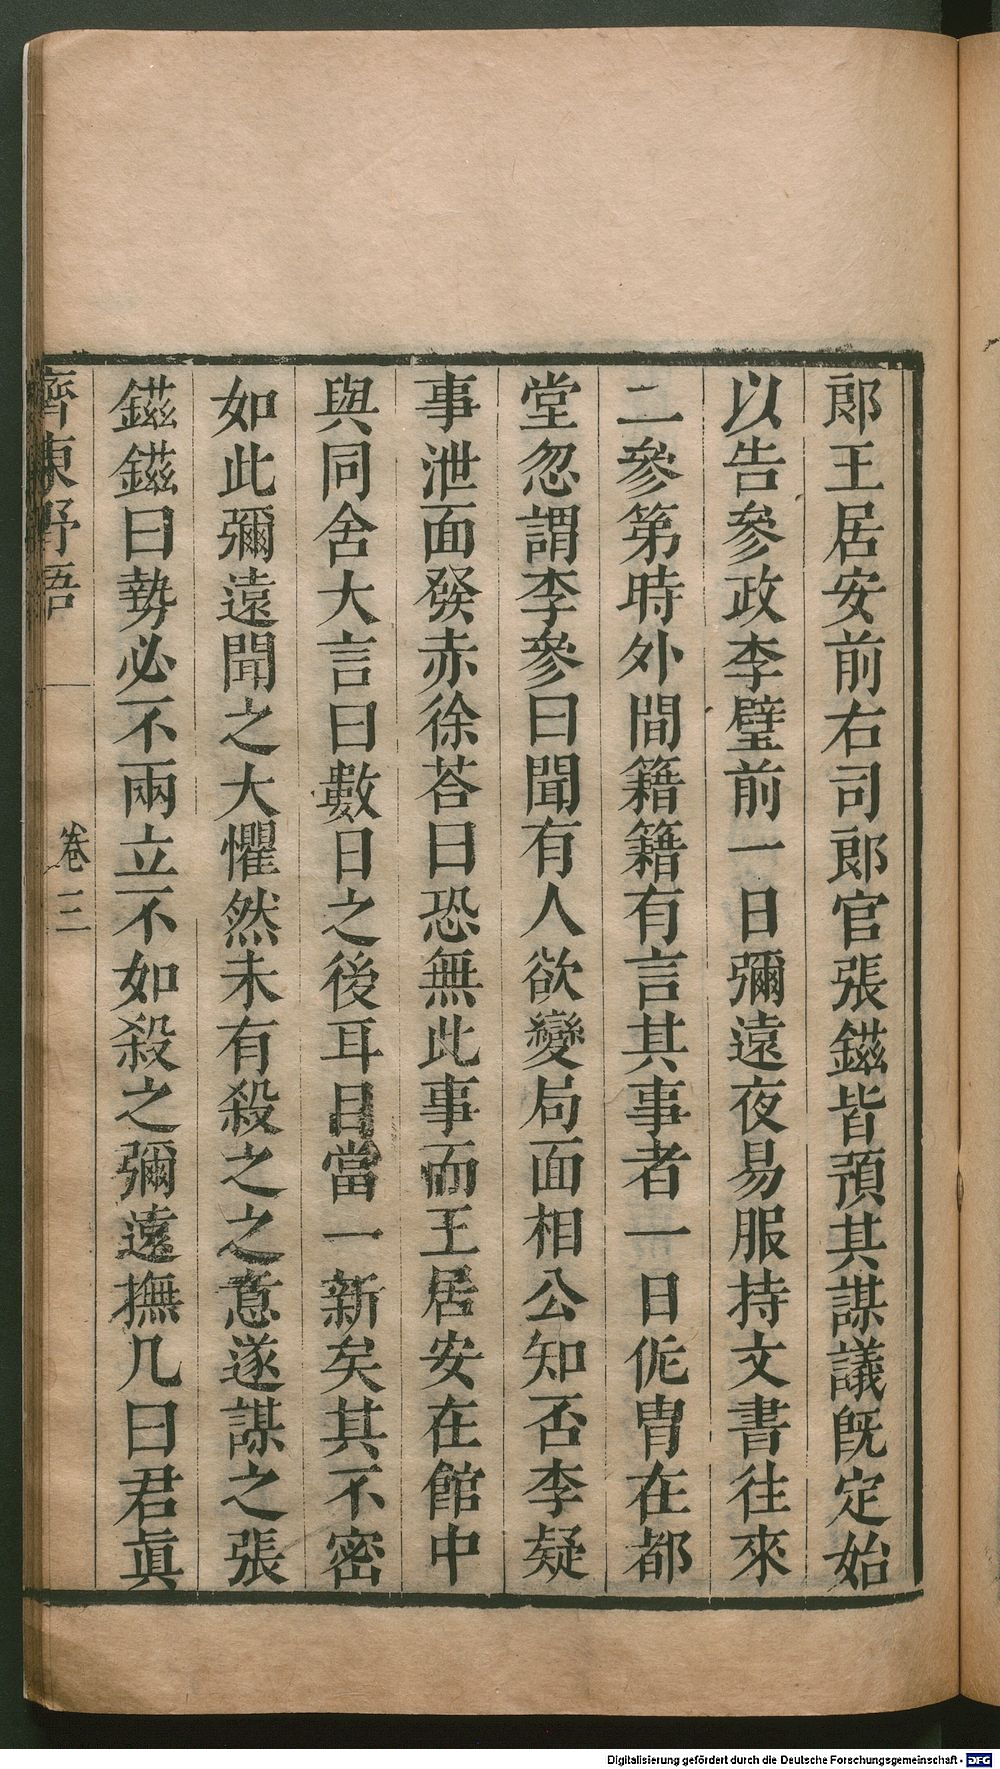 郎王居安前右司郎官張鎡皆預其謀議旣定始
以告參政李璧前一日彌遠夜易服持文書往來
二參第時外間籍籍有言其事者一日侂冑在都
堂忽謂李參曰聞有人欲變局面相公知否李疑
事泄面發赤徐荅曰恐無此事而王居安在館中
與同舍大言曰數日之後耳目當一新矣其不密
如此彌遠聞之大懼然未有殺之之意遂謀之張
鎡鎡曰勢必不兩立不如殺之彌遠撫几曰君眞
齊東野語
卷三
Digitalisierung gefördert durch die Deutsche Forschungsgemeinschaft - DFG